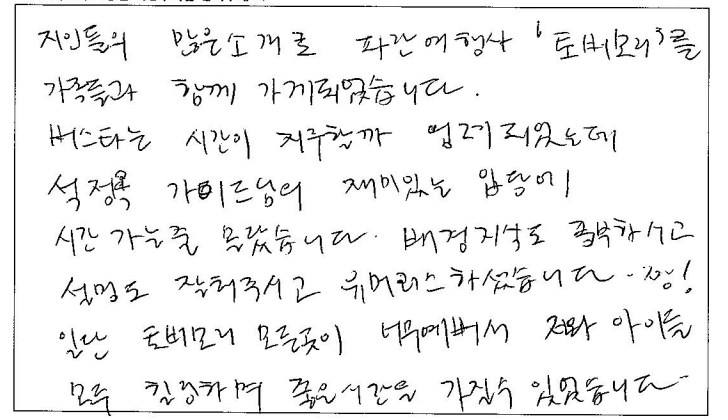 지인들의 많은소개로 파란여행사 '토버모리'를
가족들과 함께 가게되었습니다.
버스타는 시간이 지루할까 염려되었는데
석정욱 가이드님의 재미있는 입담에
시간 가는줄 몰랐습니다. 배경지식도 풍부하시고
설명도 잘해주시고 유머러스하셨습니다. 짱!
일단 토버모리 모든곳이 너무예뻐서 저와 아이들
모두 힐링하며 좋은시간을 가질수 있었습니다